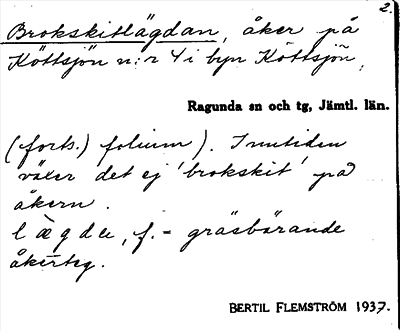 2.
Brokskitlägdan, åker på
Köttsjön n:r 4 i byn Köttsjön,
Ragunda sn och tg, Jämtl. län.
(forts.) folium). I nutiden
växer det ej 'brokskit' på
åkern.
lægde, f. = gräsbärande
åkerteg.
BERTIL FLEMSTRÖM 1937.